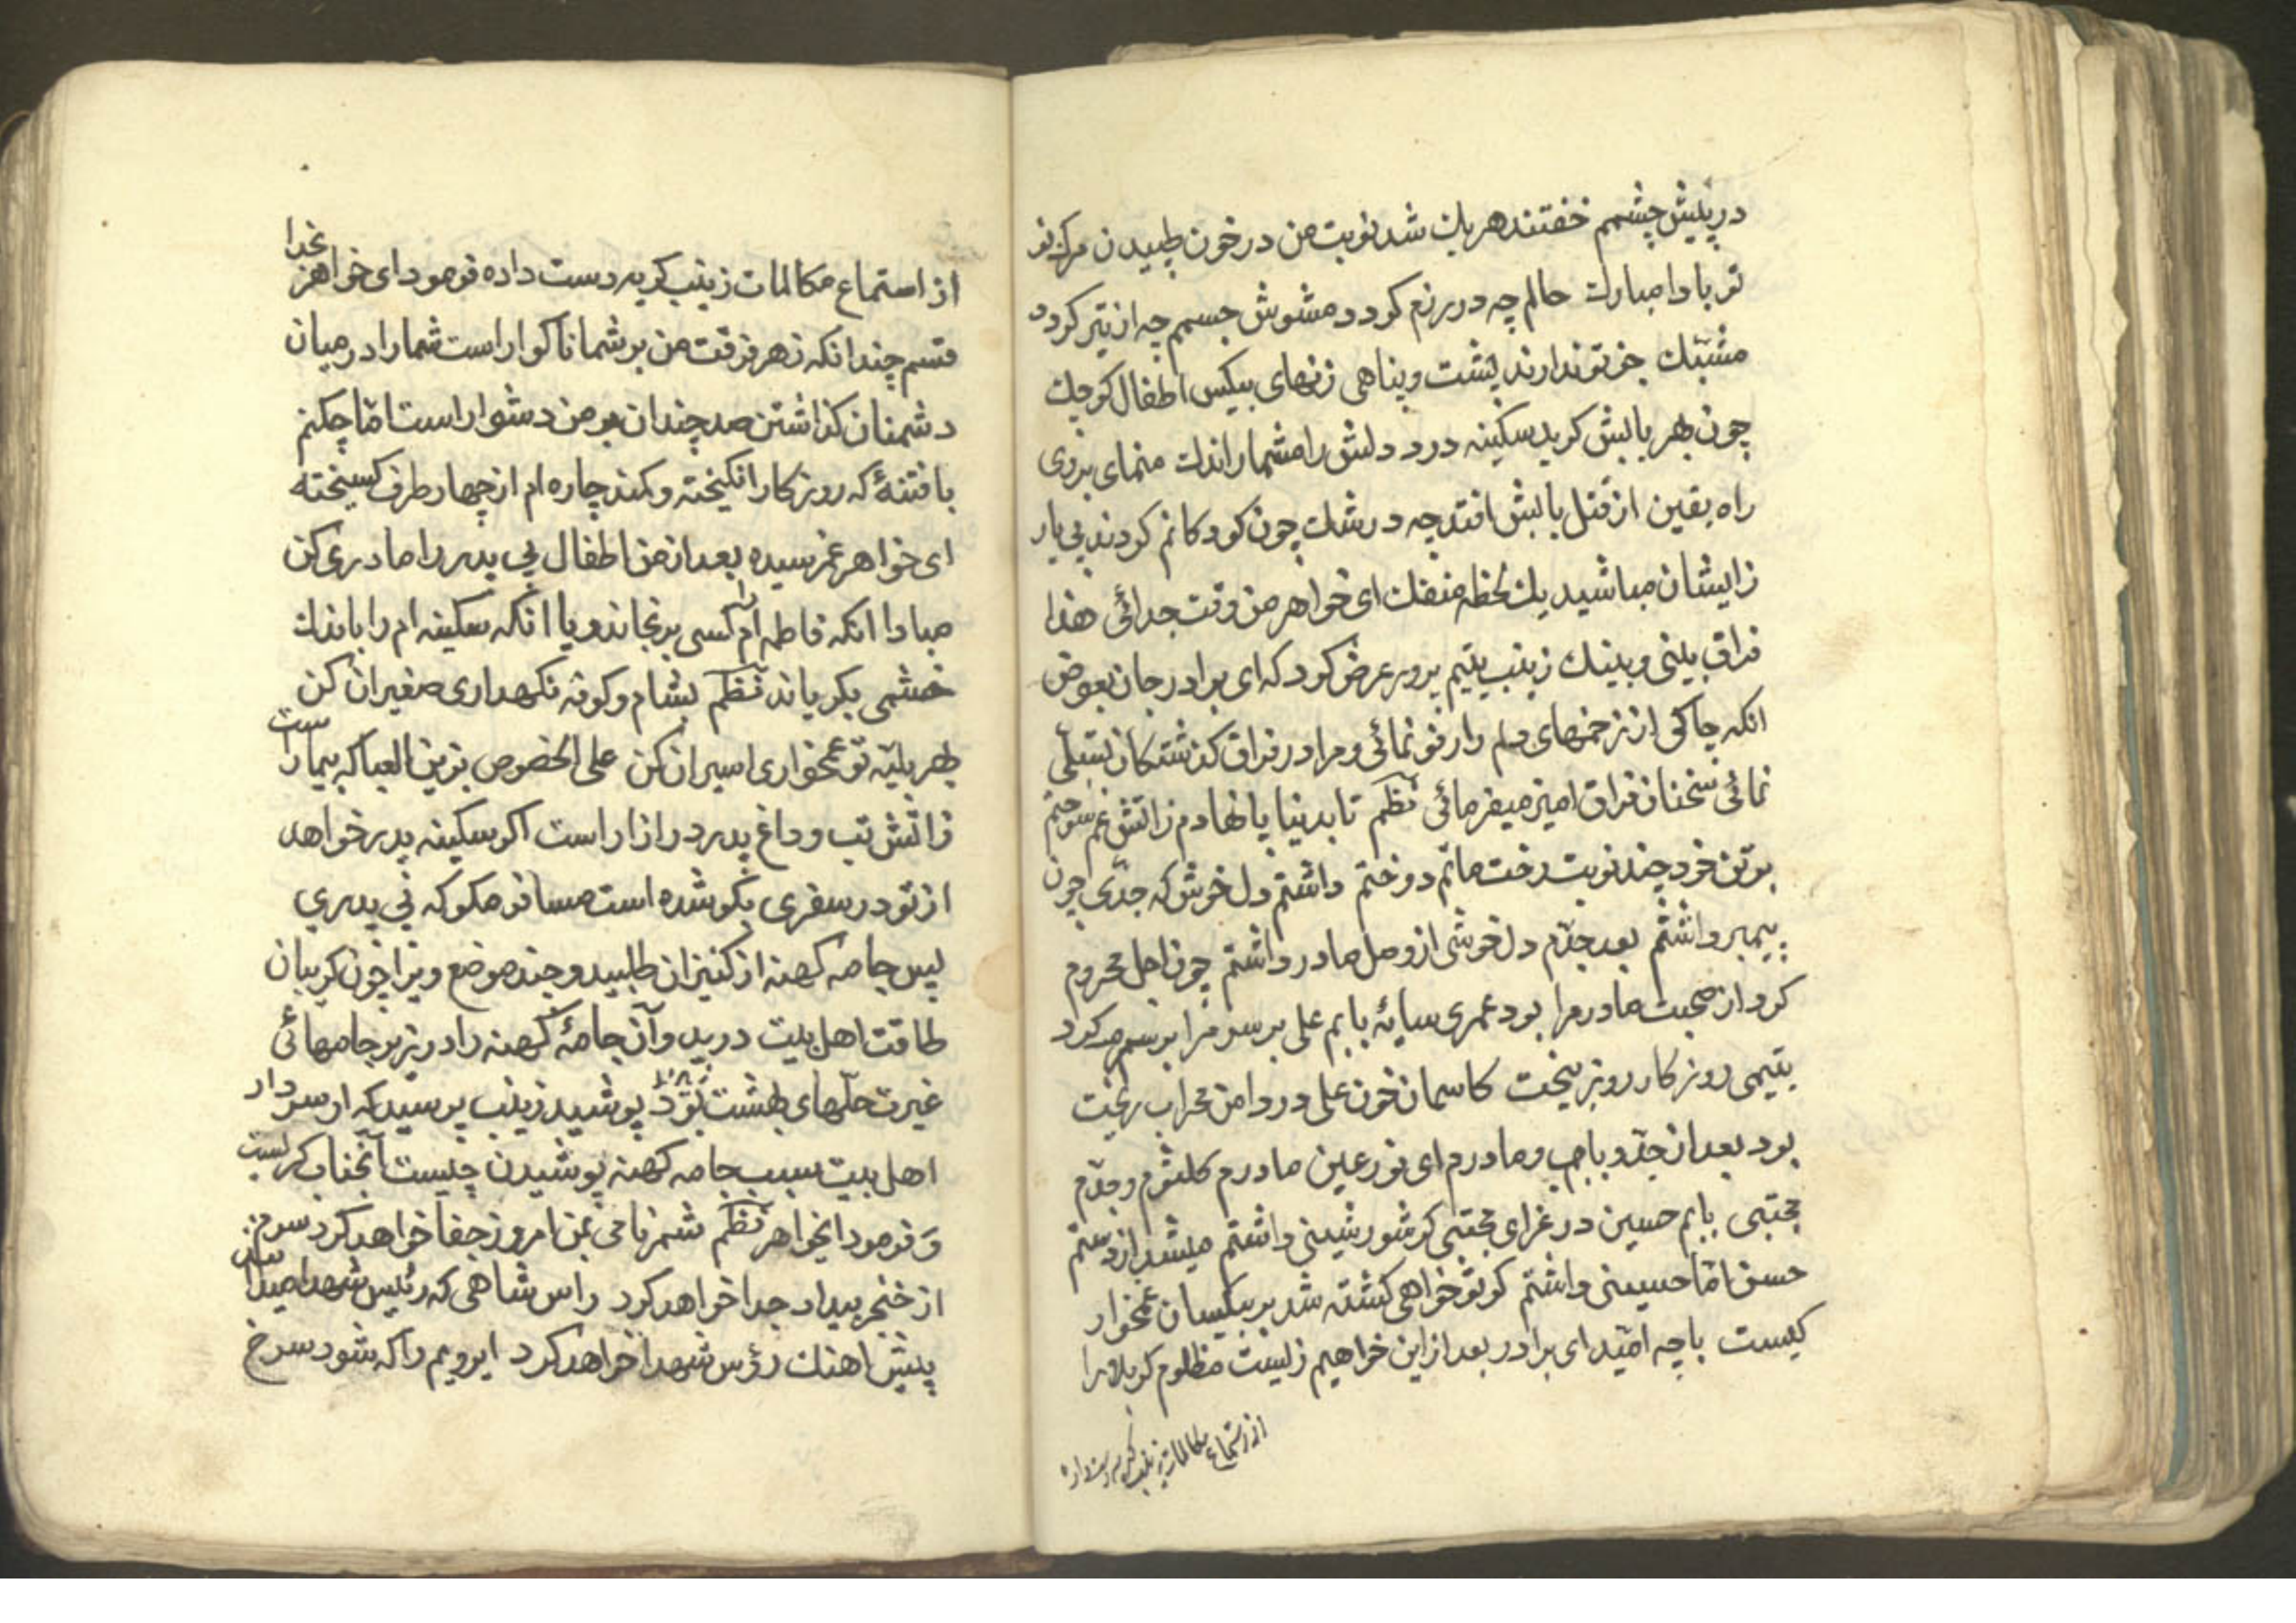 در پیش چشمم خفتند هریك شد نوبت من در خون طپیدن مرك نو
تو بادا مبارك حالم چه در رزم کردد مشوش جسمم چه از تیر کردد
مشبك جز تو ندارند پشت و پناهی زنهای بیکس اطفال کوچك
چون بهر بابش کرید سکینه درد دلش را مشمار اندك منمای بروی
راه یقین از قتل بابش افتد چه در شك چون کودکانم کردند بی یار
زایشان مباشید یك لحظه منفك ای خواهر من وقت جدائی هذا
فراق بینی و بینك زینب یتیم پرور عرض کرد که ای برادر جان بعوض
انکه چاکی از زخمهای دلم را رفو نمائی و مرا در فراق کذشتکان تسلی
نمائی سخنان فراق امیز میفرمائی نظم تا بدنیا پا نهادم زاتش غم سوختم
بر تن خود چند نوبت رخت ماتم دوختم داشتم دل خوش که جدی چون
پیمبر داشتم بعد جدم دل خوشی از وصل مادر داشتم چون اجل محروم
کرد از صحبت مادر مرا بود عمری سایهٔ بابم علی بر سر مرا بر سرم کرد
یتیمی روزکار روز بیخت کاسمان خون علی در دامن محراب ریخت
بود بعد از جد و باب و مادرم ای نور عین مادرم کلثوم و جدم
مجتبی بابم حسین در عزای مجتبی کر شور و شینی داشتم میشد از دستم
حسن اما حسینی داشتم کو تو خواهی کشته شد بر بیکسان غمخوار
کیست با چه امید ای برادر بعد از این خواهیم زیست مظلوم کربلا را
از استماع مکالمات زینب کریه دست داده
از استماع مکالمات زینب کریه دست داده فرمود ای خواهر بخدا
قسم چندانکه زهر فرقت من بر شما ناکوار است شما را در میان
دشمنان کذاشتن صد چندان بر من دشوار است اما چکنم
با فتنهٔ که روزکار انکیخته و کمند چاره ام از چهار طرف کسیخته
ای خواهر غمرسیده بعد از من اطفال بی پدر را مادری کن
مبادا انکه فاطمه ام را کسی برنجاند و یا انکه سکینه ام را باندك
خشمی بکریاند نظم بشام و کوفه نکهداری صغیران کن
بهر بلیه تو غمخواری اسیران کن علی الخصوص بزین العبا که بیمار است
زاتش تب و داغ پدر در ازار است اکر سکینه پدر خواهد
از تو در سفری بکو شده است مسافر مکو که بی پدری
پس جامه کهنه از کنیزان طلبید و چند موضع ویرا چون کریبان
طاقت اهل بیت درید و آن جامهٔ کهنه را در زیر جامهائی
غیرت حلهای بهشت بود پوشید زینب پرسید که ای سردار
اهل بیت سبب جامه کهنه پوشیدن چیست آنجناب کریست
و فرمود ایخواهر نظم شمر نامی بمن امروز جفا خواهد کرد سرم
از خنجر بیداد جدا خواهد کرد راس شاهی که رئیس شهدا میداند
پیش اهنك رؤس شهدا خواهد کرد ابرویم را که شود سرخ